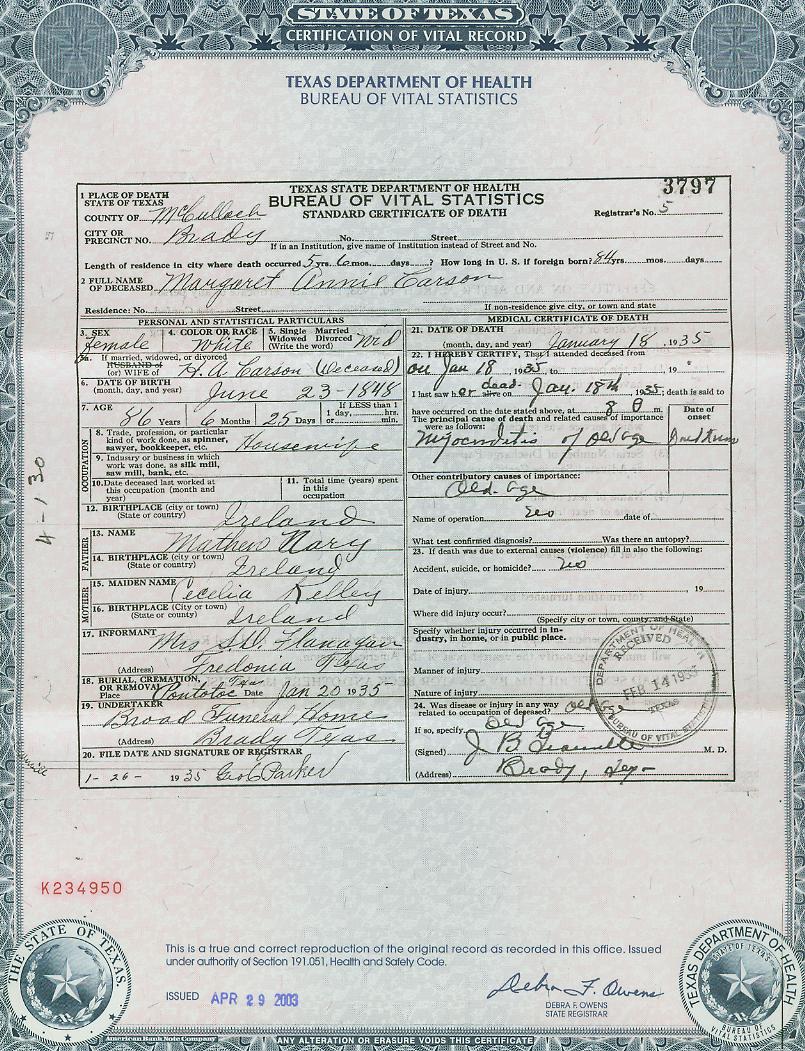 STATE OF TEXAS
CERTIFICATION OF VITAL RECORD
TEXAS DEPARTMENT OF HEALTH
BUREAU OF VITAL STATISTICS
3797
TEXAS STATE DEPARTMENT OF HEALTH
BUREAU OF VITAL STATISTICS
STANDARD CERTIFICATE OF DEATH
Registrar's No. 5
1 PLACE OF DEATH
STATE OF TEXAS
COUNTY OF McCulloch
CITY OR
PRECINCT NO. Brady No. Street
If in an Institution, give name of Institution instead of Street and No.
Length of residence in city where death occurred 5 yrs. 6 mos. days? How long in U. S. if foreign born? 84 yrs. mos. days.
2 FULL NAME
OF DECEASED Margaret Annie Carson
Residence: No. Street
If non-resident give city, or town and state
PERSONAL AND STATISTICAL PARTICULARS
3. SEX 4. COLOR OR RACE 5. Single Married Widowed Divorced (Write the word)
Female White Wed
5a. If married, widowed, or divorced
HUSBAND of
(or) WIFE of H. A. Carson (Deceased)
6. DATE OF BIRTH
(month, day, and year) June 23-1848
7. AGE 86 Years 6 Months 25 Days If LESS than 1 day, hrs. or min.
OCCUPATION
8. Trade, profession, or particular
kind of work done, as spinner,
sawyer, bookkeeper, etc. Housewife
9. Industry or business in which
work was done, as silk mill,
saw mill, bank, etc.
10. Date deceased last worked at
this occupation (month and
year)
11. Total time (years) spent
in this
occupation
12. BIRTHPLACE (City or town)
(State or country) Ireland
FATHER
13. NAME Mathew Nary
14. BIRTHPLACE (city or town)
(State or country) Ireland
MOTHER
15. MAIDEN NAME Cecelia Kelley
16. BIRTHPLACE (City or town)
(State or country) Ireland
17. INFORMANT Mrs S.D. Flanagan
(Address) Fredonia Texas
18. BURIAL, CREMATION,
OR REMOVAL Texas
Place Pontotoc Date Jan 20 1935
19. UNDERTAKER
Broad Funeral Home
(Address) Brady Texas
20. FILE DATE AND SIGNATURE OF REGISTRAR
1-26- 1935 Parker
MEDICAL CERTIFICATE OF DEATH
21. DATE OF DEATH
(month, day, and year) January 18, 1935
22. I HEREBY CERTIFY, That I attended deceased from
on Jan 18, 1935, to 19
I last saw her dead alive on Jan. 18th, 1935; death is said to
have occurred on the date stated above, at 8 m.
The principal cause of death and related causes of importance
were as follows:
Date of
onset
Myocarditis of Old Age
Other contributory causes of importance:
Old Age
Name of operation no date of
What test confirmed diagnosis? Was there an autopsy?
23. If death was due to external causes (violence) fill in also the following:
Accident, suicide, or homicide? no
Date of injury 19
Where did injury occur?
(Specify city or town, county, and State)
Specify whether injury occurred in industry, in home, or in public place.
Manner of injury
Nature of injury
24. Was disease or injury in any way
related to occupation of deceased? Old Age
If so, specify Old Age
(Signed) J B M. D.
(Address) Brady, Tex
DEPARTMENT OF HEALTH
RECEIVED
FEB 14 1935
TEXAS
BUREAU OF VITAL STATISTICS
4-130
K234950
This is a true and correct reproduction of the original record as recorded in this office. Issued
under authority of Section 191.051, Health and Safety Code.
ISSUED APR 29 2003
Debra F. Owens
DEBRA F. OWENS
STATE REGISTRAR
THE STATE OF TEXAS
TEXAS DEPARTMENT OF HEALTH
STATE OF TEXAS
BUREAU OF VITAL STATISTICS
American Bank Note Company
ANY ALTERATION OR ERASURE VOIDS THIS CERTIFICATE